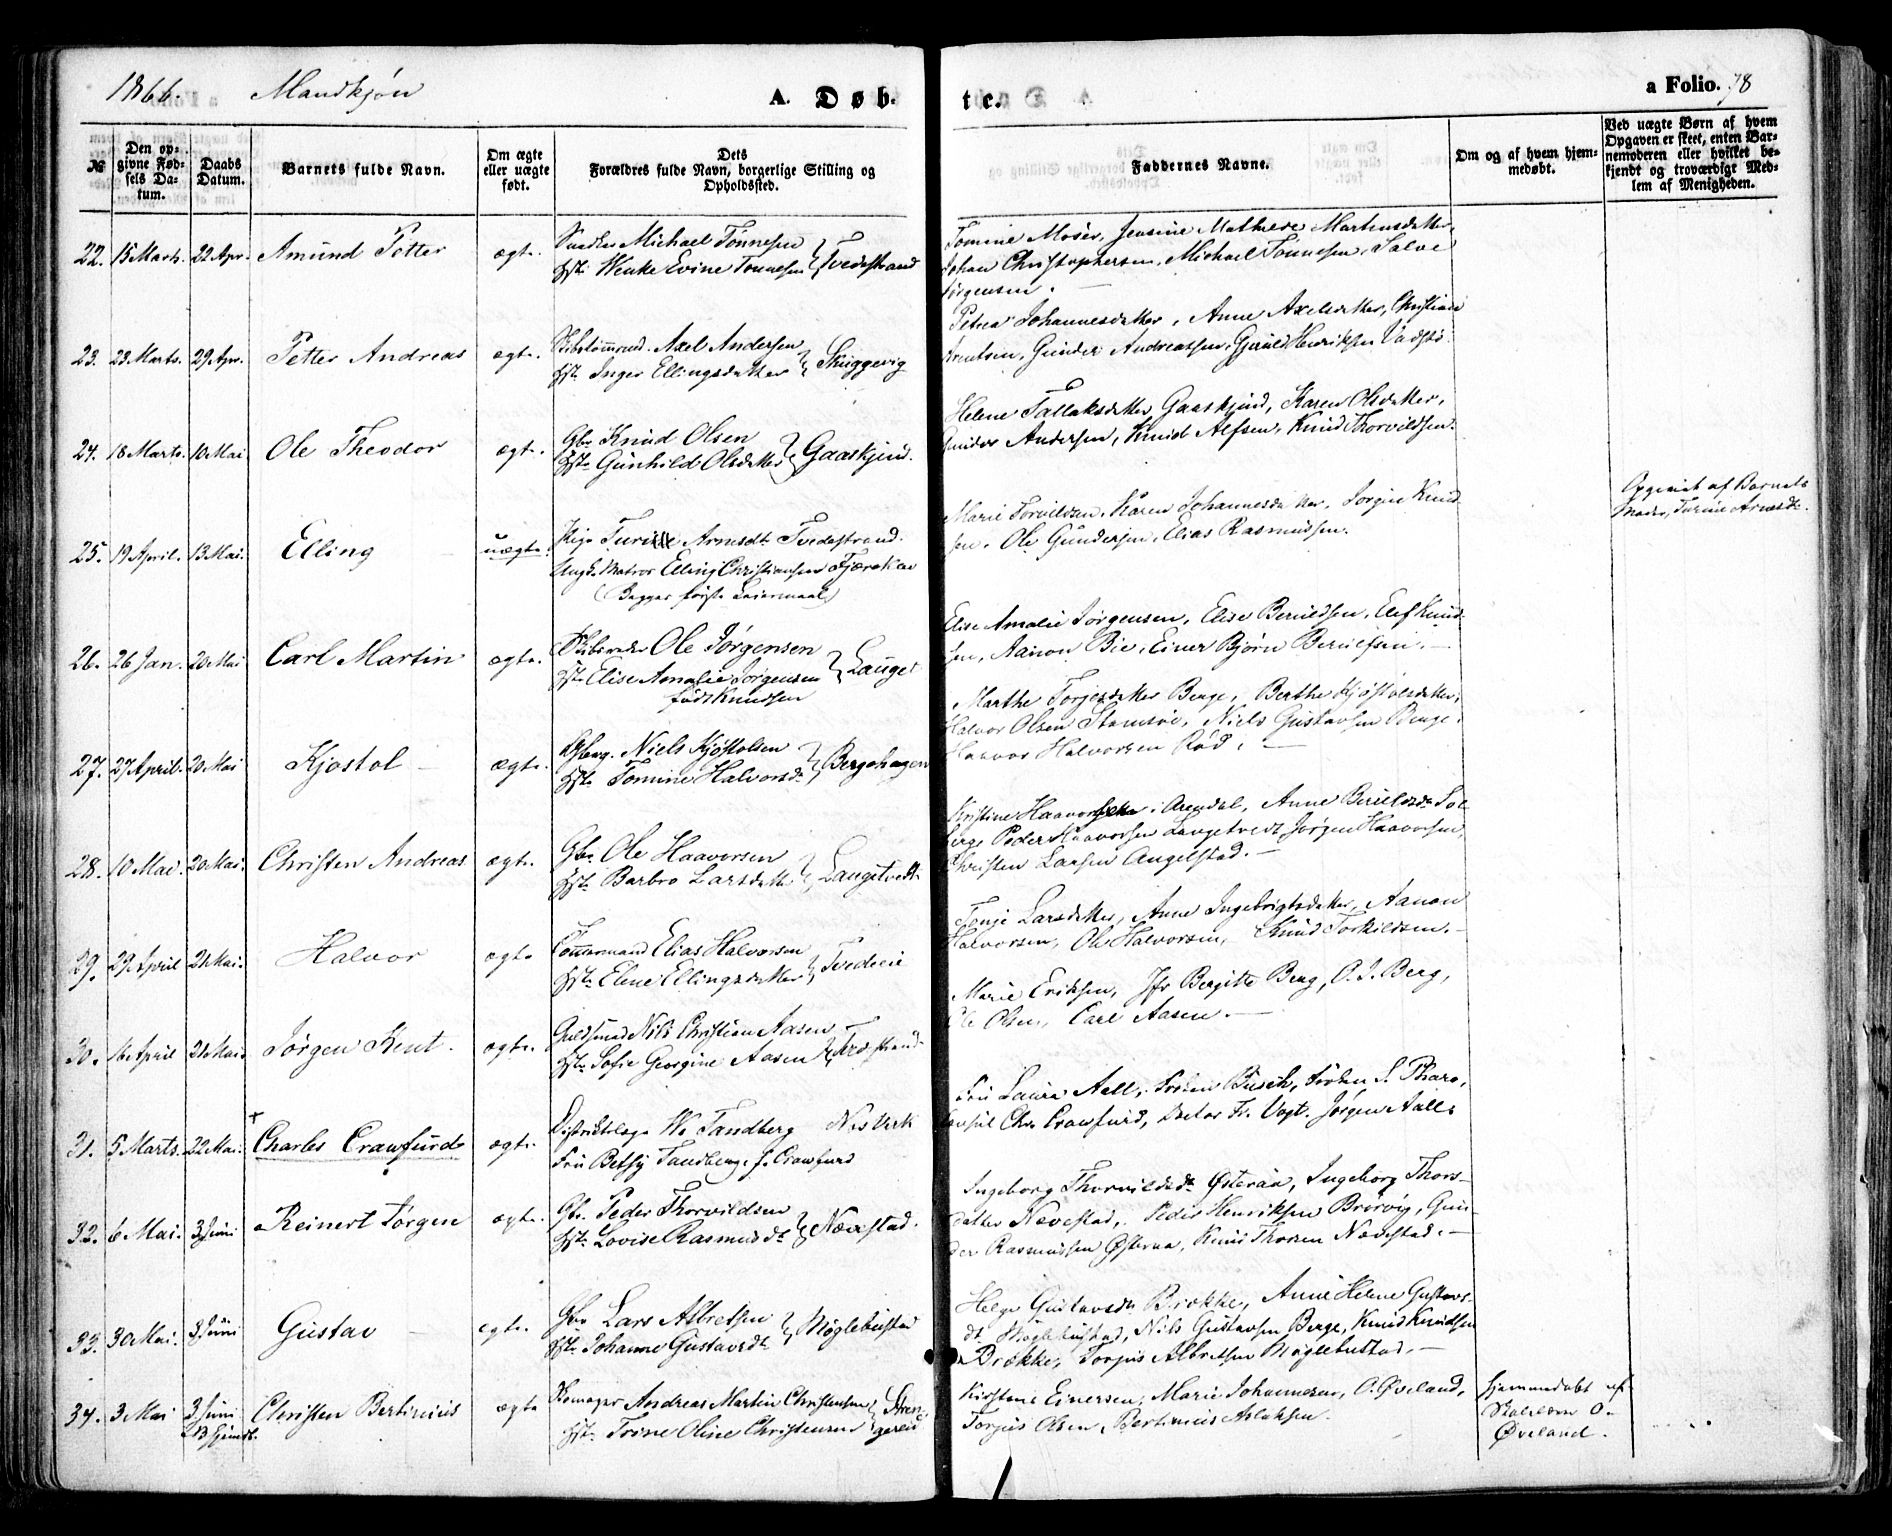 1866. Mandkjøn A. Døbte. a Folio. 78
No
Den opgivne Fødsels Datum.
Daabs Datum.
Barnets fulde Navn.
Om ægte eller uægte født.
Dets Forældres fulde Navn, borgerlige Stilling og Opholdssted.
Faddernes Navne.
Om og af hvem hjemmedøbt.
Ved uægte Børn af hvem Opgaven er skeet, enten Barnemoderen eller hvilket bekjendt og troværdigt Medlem af Menigheden.
22. 15 Marts. 22 Apr. Amund Petter ægte. Michael Tønnesen
Hst. Wenke Evine Tønnesen } Tvedestrand
Tomine Moser, Jensine Mathilde Martinsdatter,
Johan Christophersen, Michael Tønnesen, Salve
Jørgensen.
23. 23 Marts. 29 Apr. Petter Andreas ægte. Skibstømmd. Axel Andersen
Hst. Inger Ellingsdatter } Skuggevig
Petrea Johannesdatter, Anne Axelsdatter, Christian
Arentsen, Gunder Andreassen, Henriksen
24. 18 Marts. 10 Mai Ole Theodor ægte. Gbr Knud Olsen
Hst. Gunhild Olsdatter } Gaaskjind.
Helene Tallaksdatter Gaaskjind, Karen Olsdatter,
Gunder Andersen, Knud Alfsen, Knud Thorvildsen.
25. 19 April. 13 Mai. Elling uægte. Pige Turine Arnesdt. Tvedestrand.
Ungk. Matros Elling Christiansen Fjærekær
(Begges første Leiermaal)
Marie Torvildsen, Karen Johannesdatter, Jørgen Knud
sen. Ole Gundersen, Elias Rasmussen.
Opgivet af Barnets
Moder, Turine Arnesdt.
26. 26 Jan. 20 Mai Carl Martin ægte. Ole Jørgensen
Hst. Elise Amalie Jørgensen } Lauget
født Knudsen
Elise Amalie Jørgensen, Elise Berulfsen, Elef Knud-
sen, Aanon Bie, Einer Bjørn Berulfsen.
27. 27 April. 20 Mai Kjøstol ægte. Niels Kjøstolsen
Hst. Tomine Halvorsdt } Bergehagen
Marthe Torjesdatter Berge, Berthe Kjøstolsdatter,
Halvor Olsen Stamsøe, Niels Gustavsen Berge,
Haavor Halvorsen Rød.
28. 10 Mai. 20 Mai. Christen Andreas ægte. Gbr. Ole Haavorsen
Hst. Barbro Larsdatt. } Laugetvedt
Kristine Haavorsen i Arendal, Anne
Peder Haavorsen Laugetvedt, Jørgen Haavorsen,
Christen Larsen Angelstad.
29. 29 April 21 Mai. Halvor ægte Tømmermand Elias Halvorsen
Hst. Elene Ellingsdatter } Tvedeeie
Tonje Larsdatter, Anne Ingebrigtsdatter, Aanon
Halvorsen, Ole Halvorsen, Knud Torkildsen.
30. 16 April 21 Mai Jørgen Kent. ægte. Guldsmed Nils Christian Aasen
Hst. Sofie Georgine Aasen } Tvedestrand.
Marie Eriksen, Jfr Bergitte Berg, O. J. Berg,
Ole Olsen, Carl Aasen.
31. 5 Marts. 22 Mai. + Charles Crawfurd ægte. Districtslæge W. Tandberg Næs Verk
Fru Betsy Tandberg f. Crawfurd
Fru Laura Aall, Frøken Busch, Frøken S. Pharo,
Consul Chr. Crawfurd, Doctor Fr. Vogt. Jørgen Aall.
32. 6 Mai. 3 Juni Reinert Jørgen ægte. Gbr. Peder Thorvildsen
Hst. Lovise Rasmusdt } Nævestad.
Ingeborg Thorvildsdt. Østeraa, Ingeborg Thors-
datter Nævestad, Peder Henriksen Brørvig, Gun-
der Rasmussen Østeraa, Knud Thorsen Nævestad.
33. 30 Mai. 3 Juni Gustav ægte. Gbr Lars Albretsen
Hst. Johanne Gustavsdt } Møglebustad
Helge Gustavsdt. Brække, Anne Helene Gustavs-
dt. Møglebustad, Nils Gustavsen Berge, Knud Knudsen
Brække, Torjus Albretsen Møglebustad.
34. 3 Mai 3 Juni Christen Bertinius ægte Skomager Andreas Martin Christensen
Hst. Trine Oline Christensen } Strengereid
Kirstene Einersen, Marie Johannesen, O. Øveland,
Torjus Olsen, Bertinius Aslaksen.
Hjemmedøbt af
Skolelærer O.
Øveland.